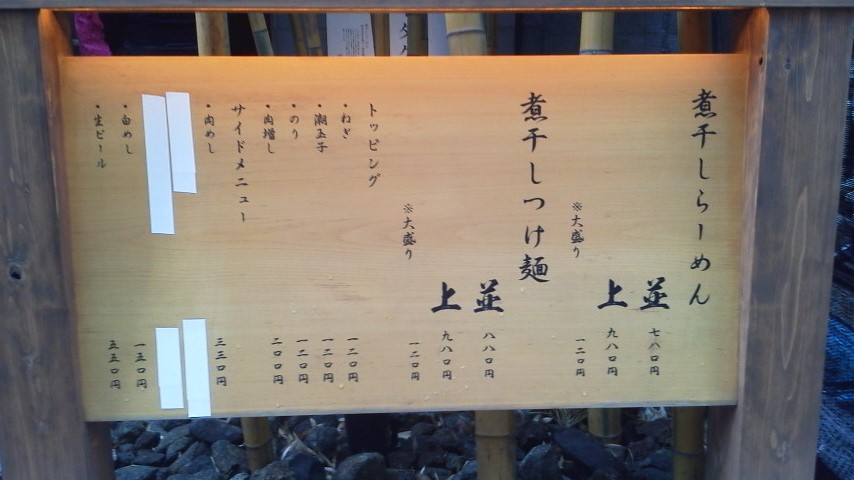 煮干しらーめん
並 七八〇円
上 九八〇円
※大盛り 一二〇円
煮干しつけ麺
並 八八〇円
上 九八〇円
※大盛り 一二〇円
トッピング
・ねぎ 一二〇円
・潮玉子 一二〇円
・のり 一二〇円
・肉増し 二〇〇円
サイドメニュー
・肉めし 三三〇円
・白めし 一五〇円
・生ビール 五五〇円